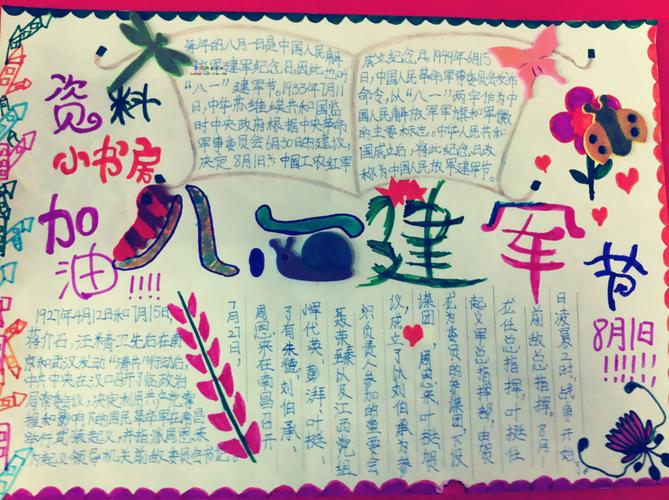 每年的八月一日是中国人民解
放军建军纪念日,因此也叫
“八一”建军节。1933年7月11
日,中华苏维埃共和国临
时中央政府根据中央革命
军事委员会6月30日的建议,
决定8月1日为中国工农红军
成立纪念日。1949年6月15
日,中国人民革命军事委员会发布
命令,以“八一”两字作为中
国人民解放军军旗和军徽
的主要标志。中华人民共和
国成立后,将此纪念日改
称为中国人民放军建军节。
资料
小书房
加油
!!!!
八一建军
节
8月1日
!!!!!!
1927年4月12日和7月15日,
蒋介石、汪精卫先后在南
京和武汉发动“清共”行动后,
中共中央在汉口召开了临政治
局常委会议,决定利用共产党掌
握和影响下的国民革命军在南昌
举行武装起义,并指派周恩来
为起义领导机关前敌委员会书记。
7月27日,
周恩来在南昌召开
了有朱德、刘伯承、
恽代英、彭湃、叶挺、
聂荣臻以及江西党组
织负责人参加的重要会
议,成立了以刘伯承为参
谋团,周恩来、叶挺、贺
龙为委员的
起义军总指挥部,由贺
龙任总指挥,叶挺任
前敌总指挥。8月1
日凌晨2时,战争开始